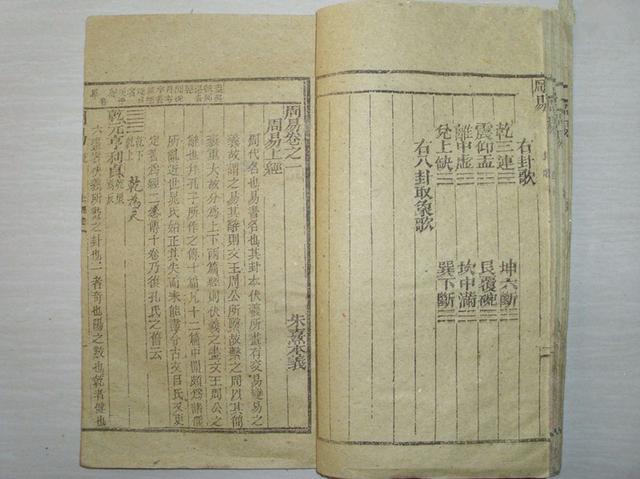 周易
右卦歌
乾三連☰ 坤六斷☷
震仰盂☳ 艮覆碗☶
離中虛☲ 坎中滿☵
兌上缺☱ 巽下斷☴
右八卦取象歌
周易卷之一
周易上經 朱熹本義
周代名也易書名也其卦本伏羲所畫有交易變易之
義故謂之易其辭則文王周公所繫故繫之周以其簡
袠重大故分爲上下兩篇經則伏羲之畫文王周公之
辭也并孔子所作之傳十篇凡十二篇中間頗爲諸儒
所亂近世晁氏始正其失而未能盡合古文呂氏又更
定著爲經二卷傳十卷乃復孔氏之舊云
乾下
乾上
乾為天
乾元亨利貞
六畫者伏羲所畫之卦也一者奇也陽之數也乾者健也